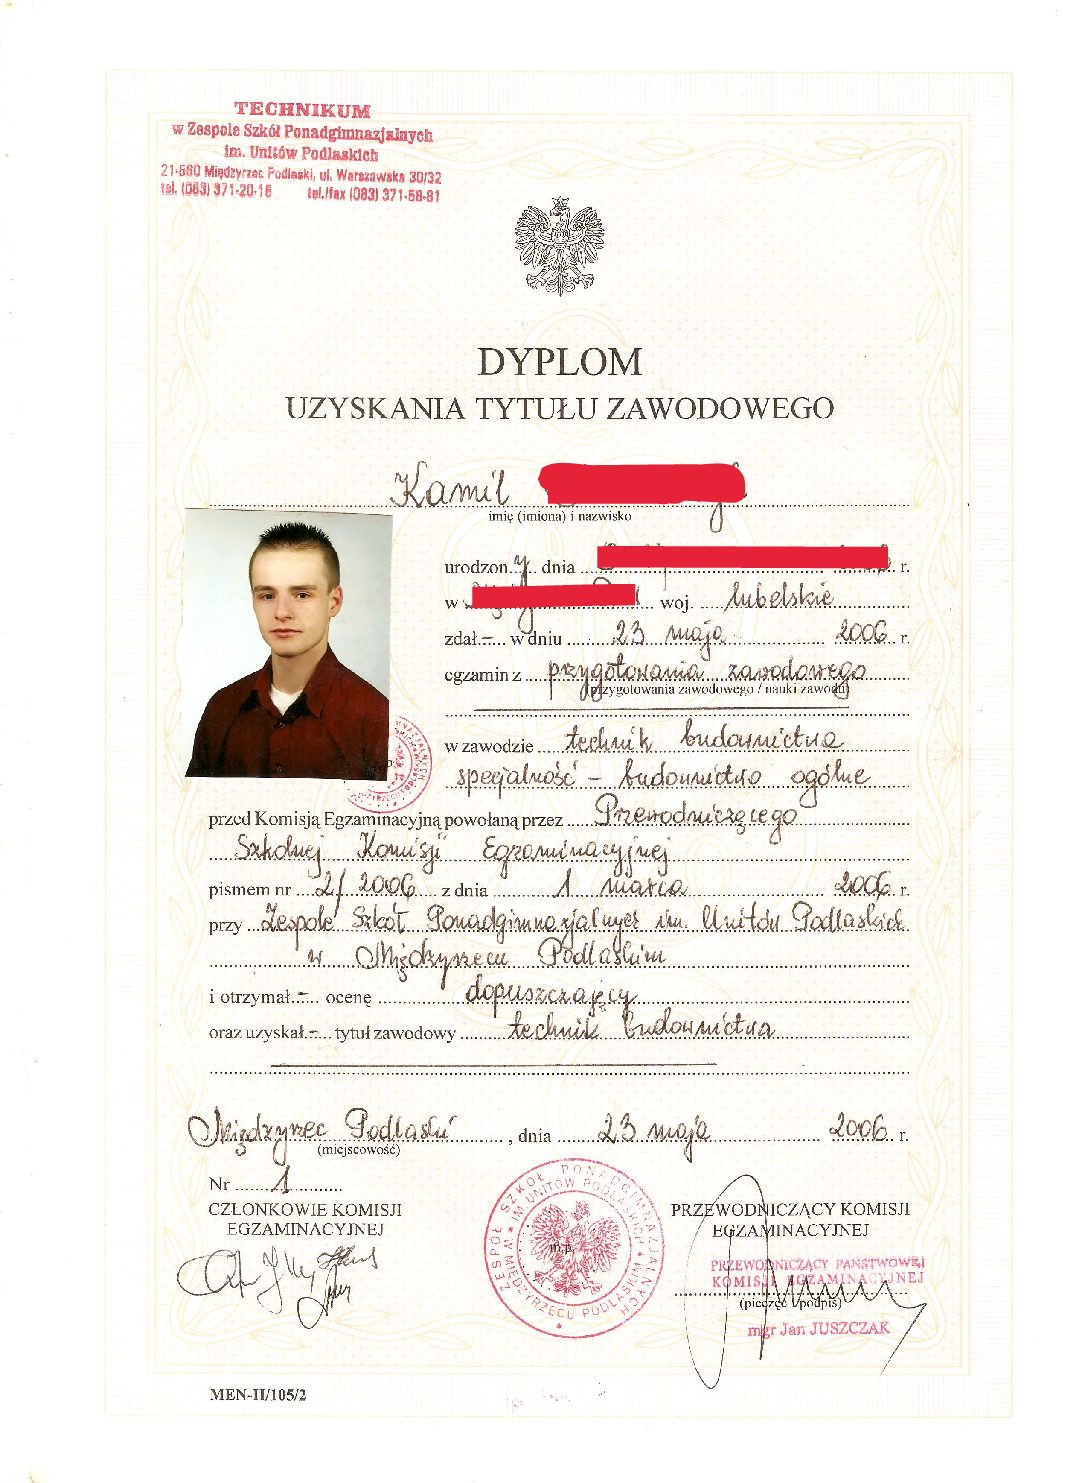 TECHNIKUM
w Zespole Szkół Ponadgimnazjalnych
im. Unitów Podlaskich
21-560 Międzyrzec Podlaski, ul. Warszawska 30/32
tel. (083) 371-20-15 tel./fax (083) 371-58-81
DYPLOM
UZYSKANIA TYTUŁU ZAWODOWEGO
Kamil
imię (imiona) i nazwisko
urodzony dnia r.
w woj. lubelskie
zdał - w dniu 23 maja 2006 r.
egzamin z przygotowania zawodowego
(przygotowania zawodowego / nauki zawodu)
w zawodzie technik budownictwa
specjalność - budownictwo ogólne
przed Komisją Egzaminacyjną powołaną przez Przewodniczącego
Szkolnej Komisji Egzaminacyjnej
pismem nr 2/2006 z dnia 1 marca 2006 r.
przy Zespole Szkół Ponadgimnazjalnych im. Unitów Podlaskich
w Międzyrzecu Podlaskim
i otrzymał - ocenę dopuszczający
oraz uzyskał - tytuł zawodowy technik budownictwa
Międzyrzec Podlaski, dnia 23 maja 2006 r.
(miejscowość)
Nr 1
CZŁONKOWIE KOMISJI
EGZAMINACYJNEJ
ZESPÓŁ SZKÓŁ PONADGIMNAZJALNYCH
IM UNITÓW PODLASKICH
W MIĘDZYRZECU PODLASKIM
m.p.
PRZEWODNICZĄCY KOMISJI
EGZAMINACYJNEJ
PRZEWODNICZĄCY PAŃSTWOWEJ
KOMISJI EGZAMINACYJNEJ
(pieczęć i podpis)
mgr Jan JUSZCZAK
MEN-II/105/2